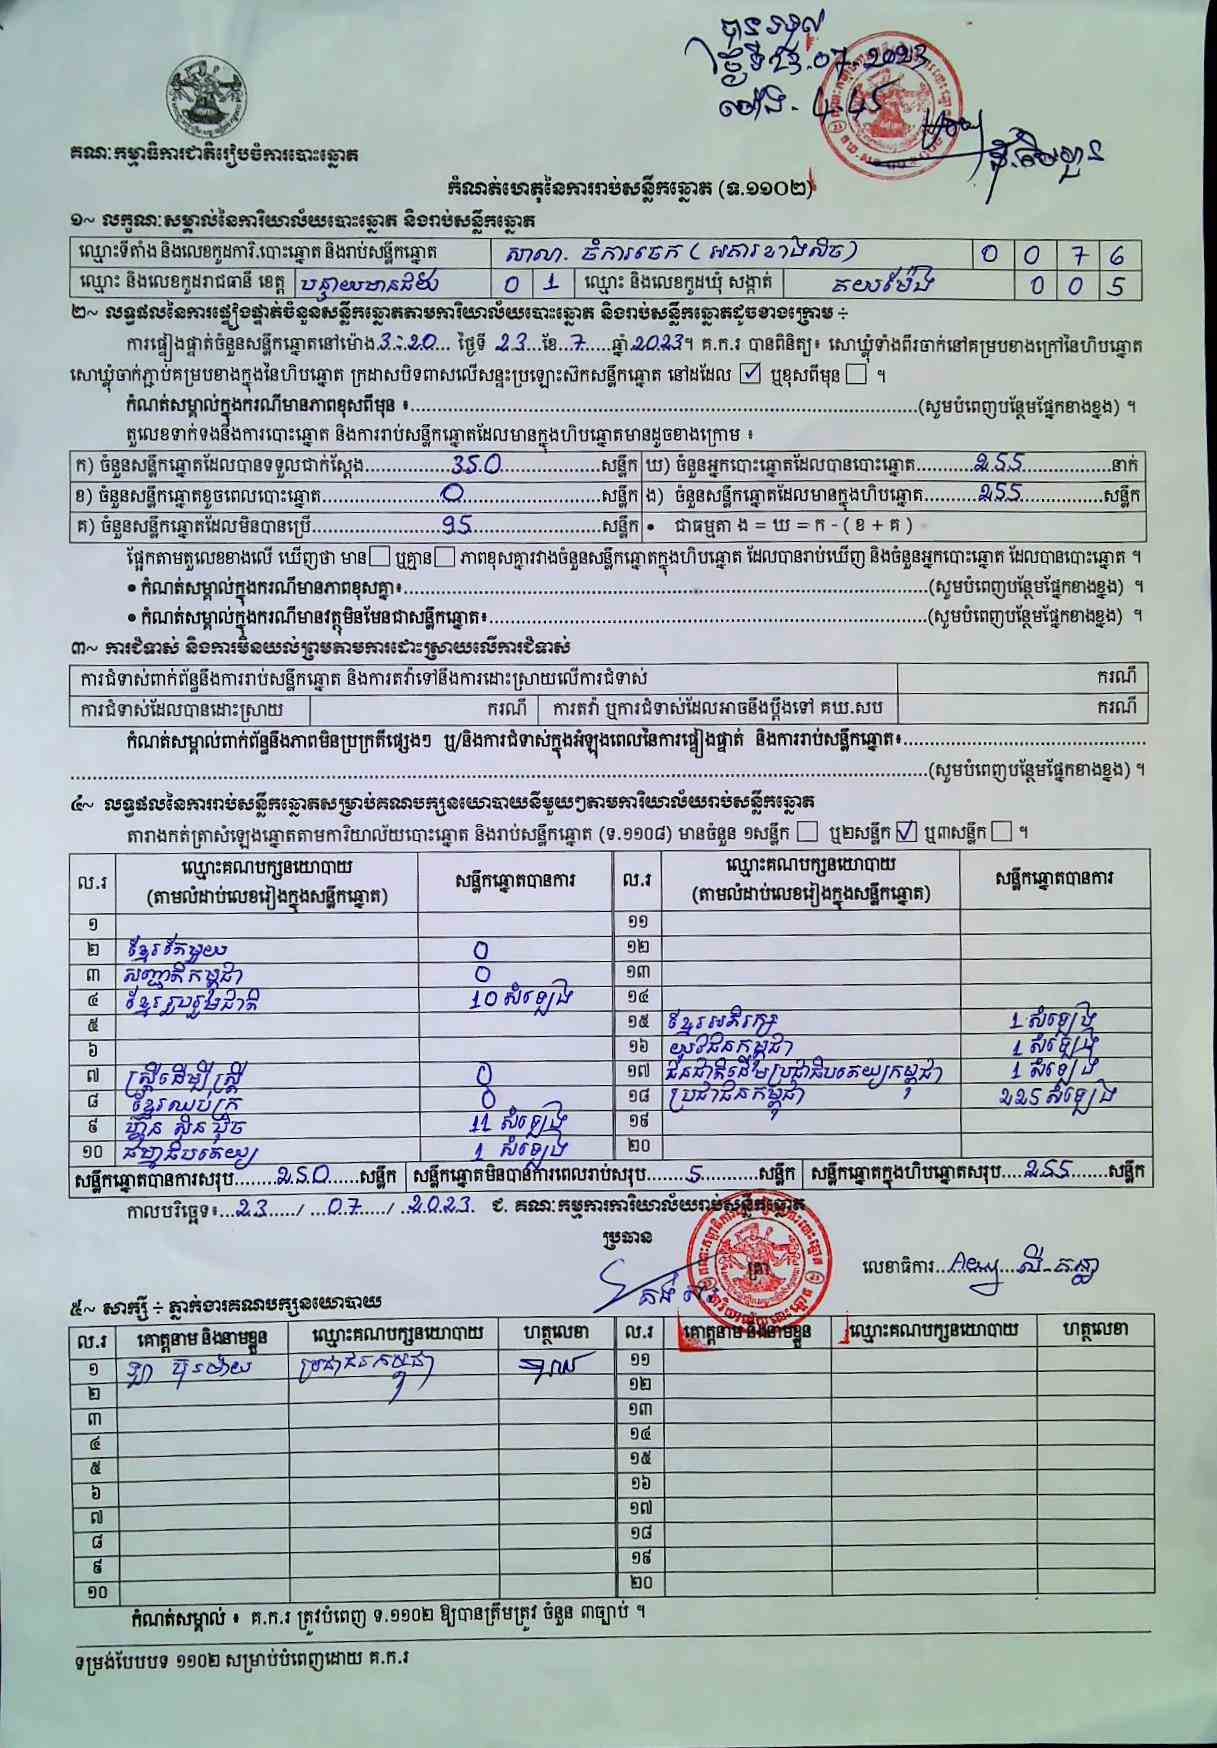 បានទទួល
ថ្ងៃទី 23.07.2023
ម៉ោង - 4:45
គណៈកម្មាធិការជាតិរៀបចំការបោះឆ្នោត
កំណត់ហេតុនៃការរាប់សន្លឹកឆ្នោត (ទ.១១០២)
១~ លក្ខណៈសម្គាល់នៃការិយាល័យបោះឆ្នោត និងរាប់សន្លឹកឆ្នោត
ឈ្មោះទីតាំង និងលេខកូដការិ.បោះឆ្នោត និងរាប់សន្លឹកឆ្នោត សាលា. ចំការចេក ( អគារខាងលិច) 0 0 7 6
ឈ្មោះ និងលេខកូដរាជធានី ខេត្ត បន្ទាយមានជ័យ 0 1 ឈ្មោះ និងលេខកូដឃុំ សង្កាត់ គយម៉ែង 0 0 5
២~ លទ្ធផលនៃការផ្ទៀងផ្ទាត់ចំនួនសន្លឹកឆ្នោតតាមការិយាល័យបោះឆ្នោត និងរាប់សន្លឹកឆ្នោតដូចខាងក្រោម ÷
ការផ្ទៀងផ្ទាត់ចំនួនសន្លឹកឆ្នោតនៅម៉ោង 3:20 ថ្ងៃទី 23 ខែ 7 ឆ្នាំ 2023។ គ.ក.រ បានពិនិត្យ៖ សោឃ្លុំទាំងពីរចាក់នៅគម្របខាងក្រៅនៃហិបឆ្នោត
សោឃ្លុំចាក់ភ្ជាប់គម្របខាងក្នុងនៃហិបឆ្នោត ក្រដាសបិទពាសលើសន្ទះប្រឡោះស៊កសន្លឹកឆ្នោត នៅដដែល ☑ ឬខុសពីមុន ☐ ។
កំណត់សម្គាល់ក្នុងករណីមានភាពខុសពីមុន ៖ (សូមបំពេញបន្ថែមផ្នែកខាងខ្នង) ។
តួលេខទាក់ទងនឹងការបោះឆ្នោត និងការរាប់សន្លឹកឆ្នោតដែលមានក្នុងហិបឆ្នោតមានដូចខាងក្រោម ៖
ក) ចំនួនសន្លឹកឆ្នោតដែលបានទទួលជាក់ស្តែង 350 សន្លឹក ឃ) ចំនួនអ្នកបោះឆ្នោតដែលបានបោះឆ្នោត 255 នាក់
ខ) ចំនួនសន្លឹកឆ្នោតខូចពេលបោះឆ្នោត 0 សន្លឹក ង) ចំនួនសន្លឹកឆ្នោតដែលមានក្នុងហិបឆ្នោត 255 សន្លឹក
គ) ចំនួនសន្លឹកឆ្នោតដែលមិនបានប្រើ 95 សន្លឹក • ជាធម្មតា ង = ឃ = ក - ( ខ + គ )
ផ្អែកតាមតួលេខខាងលើ ឃើញថា មាន ☐ ឬគ្មាន ☐ ភាពខុសគ្នារវាងចំនួនសន្លឹកឆ្នោតក្នុងហិបឆ្នោត ដែលបានរាប់ឃើញ និងចំនួនអ្នកបោះឆ្នោត ដែលបានបោះឆ្នោត ។
• កំណត់សម្គាល់ក្នុងករណីមានភាពខុសគ្នា៖ (សូមបំពេញបន្ថែមផ្នែកខាងខ្នង) ។
• កំណត់សម្គាល់ក្នុងករណីមានវត្ថុមិនមែនជាសន្លឹកឆ្នោត៖ (សូមបំពេញបន្ថែមផ្នែកខាងខ្នង) ។
៣~ ការជំទាស់ និងការមិនយល់ព្រមតាមការដោះស្រាយលើការជំទាស់
ការជំទាស់ពាក់ព័ន្ធនឹងការរាប់សន្លឹកឆ្នោត និងការតវ៉ាទៅនឹងការដោះស្រាយលើការជំទាស់ ករណី
ការជំទាស់ដែលបានដោះស្រាយ ករណី ការតវ៉ា ឬការជំទាស់ដែលអាចនឹងប្តឹងទៅ គឃ.សប ករណី
កំណត់សម្គាល់ពាក់ព័ន្ធនឹងភាពមិនប្រក្រតីផ្សេងៗ ឬ/និងការជំទាស់ក្នុងអំឡុងពេលនៃការផ្ទៀងផ្ទាត់ និងការរាប់សន្លឹកឆ្នោត៖
(សូមបំពេញបន្ថែមផ្នែកខាងខ្នង) ។
៤~ លទ្ធផលនៃការរាប់សន្លឹកឆ្នោតសម្រាប់គណបក្សនយោបាយនីមួយៗតាមការិយាល័យរាប់សន្លឹកឆ្នោត
តារាងកត់ត្រាសំឡេងឆ្នោតតាមការិយាល័យបោះឆ្នោត និងរាប់សន្លឹកឆ្នោត (ទ.១១០៨) មានចំនួន ១សន្លឹក ☐ ឬ២សន្លឹក ☑ ឬ៣សន្លឹក ☐ ។
ល.រ ឈ្មោះគណបក្សនយោបាយ (តាមលំដាប់លេខរៀងក្នុងសន្លឹកឆ្នោត) សន្លឹកឆ្នោតបានការ ល.រ ឈ្មោះគណបក្សនយោបាយ (តាមលំដាប់លេខរៀងក្នុងសន្លឹកឆ្នោត) សន្លឹកឆ្នោតបានការ
១ ១១
២ ខ្មែរតែមួយ 0 ១២
៣ សញ្ជាតិកម្ពុជា 0 ១៣
៤ ខ្មែររួបរួមជាតិ 10 សំឡេង ១៤
៥ ១៥ ខ្មែរអភិរក្ស 1 សំឡេង
៦ ១៦ យុវជនកម្ពុជា 1 សំឡេង
៧ ស្ត្រីដើម្បីស្ត្រី 0 ១៧ ជនជាតិដើមប្រជាធិបតេយ្យកម្ពុជា 1 សំឡេង
៨ ខ្មែរឈប់ក្រ 0 ១៨ ប្រជាជនកម្ពុជា 225 សំឡេង
៩ ហ្វ៊ុន ស៊ិន ប៉ិច 11 សំឡេង ១៩
១០ ធម្មាធិបតេយ្យ 1 សំឡេង ២០
សន្លឹកឆ្នោតបានការសរុប 250 សន្លឹក សន្លឹកឆ្នោតមិនបានការពេលរាប់សរុប 5 សន្លឹក សន្លឹកឆ្នោតក្នុងហិបឆ្នោតសរុប 255 សន្លឹក
កាលបរិច្ឆេទ៖ 23 / 07 / 2023 ជ. គណៈកម្មការការិយាល័យរាប់សន្លឹកឆ្នោត
ប្រធាន
ត្រា
លេខាធិការ
៥~ សាក្សី ÷ ភ្នាក់ងារគណបក្សនយោបាយ
ល.រ គោត្តនាម និងនាមខ្លួន ឈ្មោះគណបក្សនយោបាយ ហត្ថលេខា ល.រ គោត្តនាម និងនាមខ្លួន ឈ្មោះគណបក្សនយោបាយ ហត្ថលេខា
១ ប្រជាជនកម្ពុជា ១១
២ ១២
៣ ១៣
៤ ១៤
៥ ១៥
៦ ១៦
៧ ១៧
៨ ១៨
៩ ១៩
១០ ២០
កំណត់សម្គាល់ ៖ គ.ក.រ ត្រូវបំពេញ ទ.១១០២ ឱ្យបានត្រឹមត្រូវ ចំនួន ៣ច្បាប់ ។
ទម្រង់បែបបទ ១១០២ សម្រាប់បំពេញដោយ គ.ក.រ